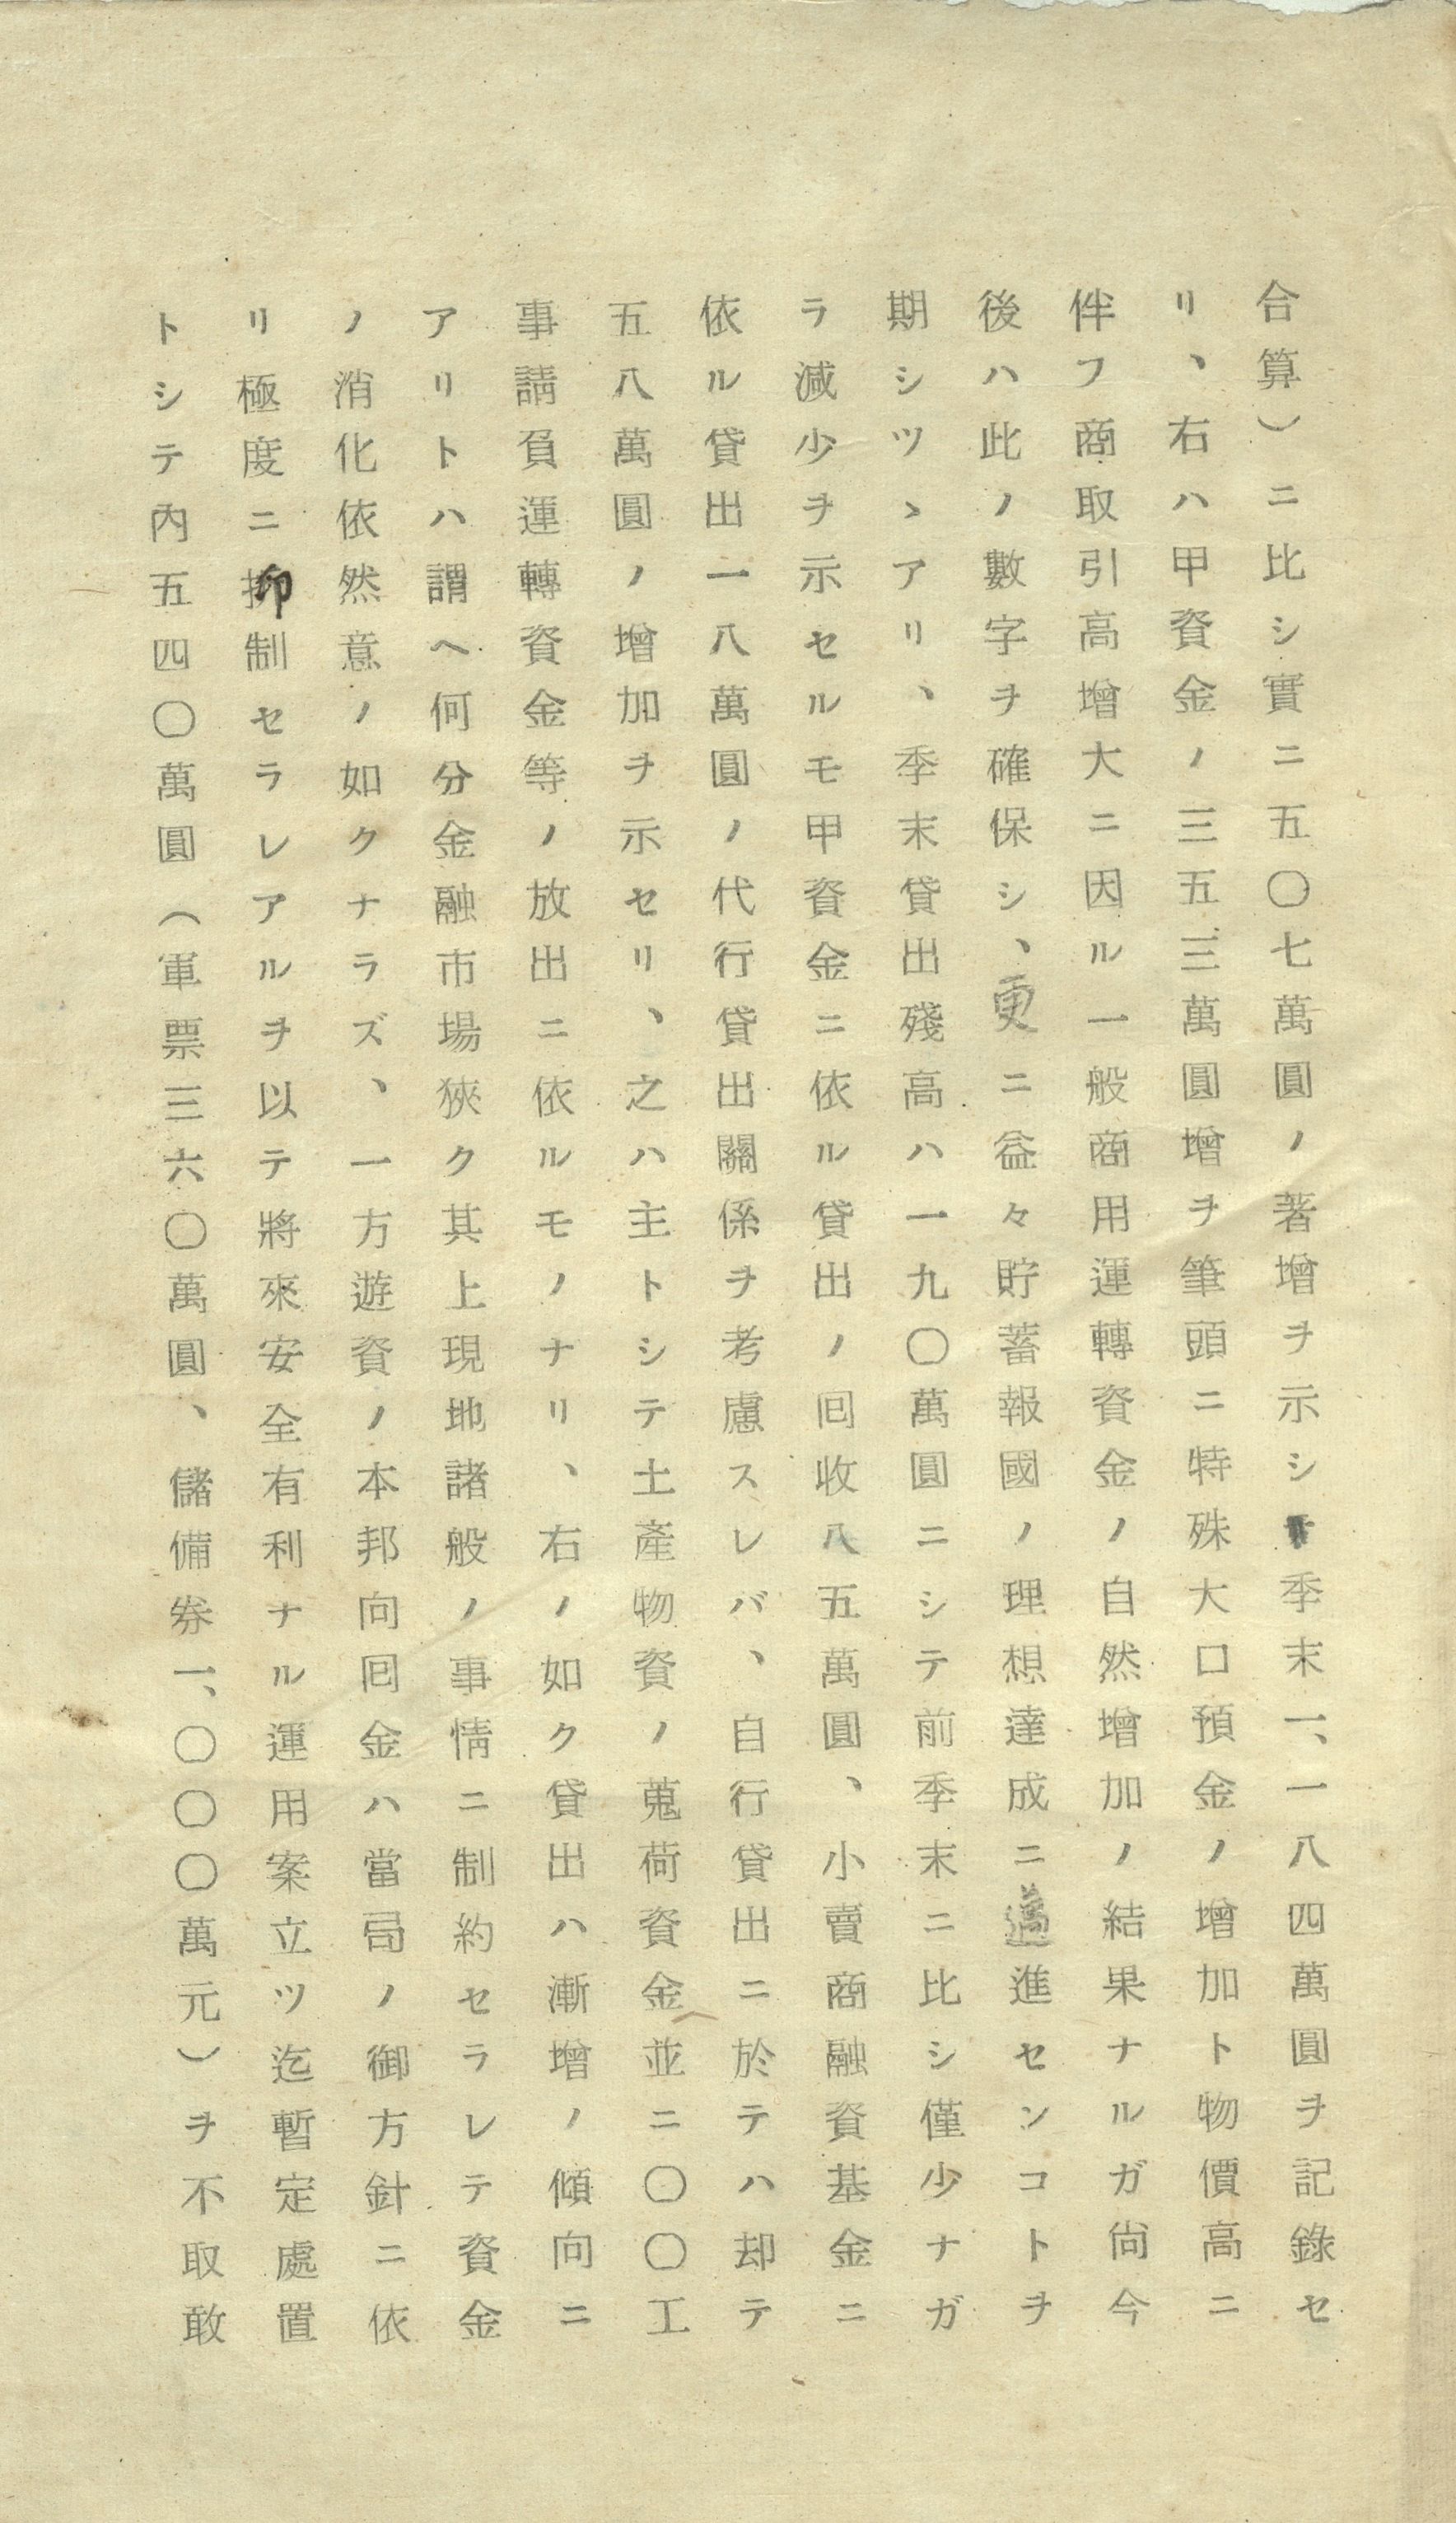 合算）ニ比シ實ニ五〇七萬圓ノ著增ヲ示シ季末一、一八四萬圓ヲ記錄セ
リ、右ハ甲資金ノ三五三萬圓增ヲ筆頭ニ特殊大口預金ノ增加ト物價高ニ
伴フ商取引高增大ニ因ル一般商用運轉資金ノ自然增加ノ結果ナルガ尙今
後ハ此ノ數字ヲ確保シ、更ニ益々貯蓄報國ノ理想達成ニ邁進センコトヲ
期シツヽアリ、季末貸出殘高ハ一九〇萬圓ニシテ前季末ニ比シ僅少ナガ
ラ減少ヲ示セルモ甲資金ニ依ル貸出ノ囘收八五萬圓、小賣商融資基金ニ
依ル貸出一八萬圓ノ代行貸出關係ヲ考慮スレバ、自行貸出ニ於テハ却テ
五八萬圓ノ增加ヲ示セリ、之ハ主トシテ土產物資ノ蒐荷資金並ニ〇〇工
事請負運轉資金等ノ放出ニ依ルモノナリ、右ノ如ク貸出ハ漸增ノ傾向ニ
アリトハ謂ヘ何分金融市場狹ク其上現地諸般ノ事情ニ制約セラレテ資金
ノ消化依然意ノ如クナラズ、一方遊資ノ本邦向囘金ハ當局ノ御方針ニ依
リ極度ニ抑制セラレアルヲ以テ將來安全有利ナル運用案立ツ迄暫定處置
トシテ內五四〇萬圓（軍票三六〇萬圓、儲備券一、〇〇〇萬元）ヲ不取敢